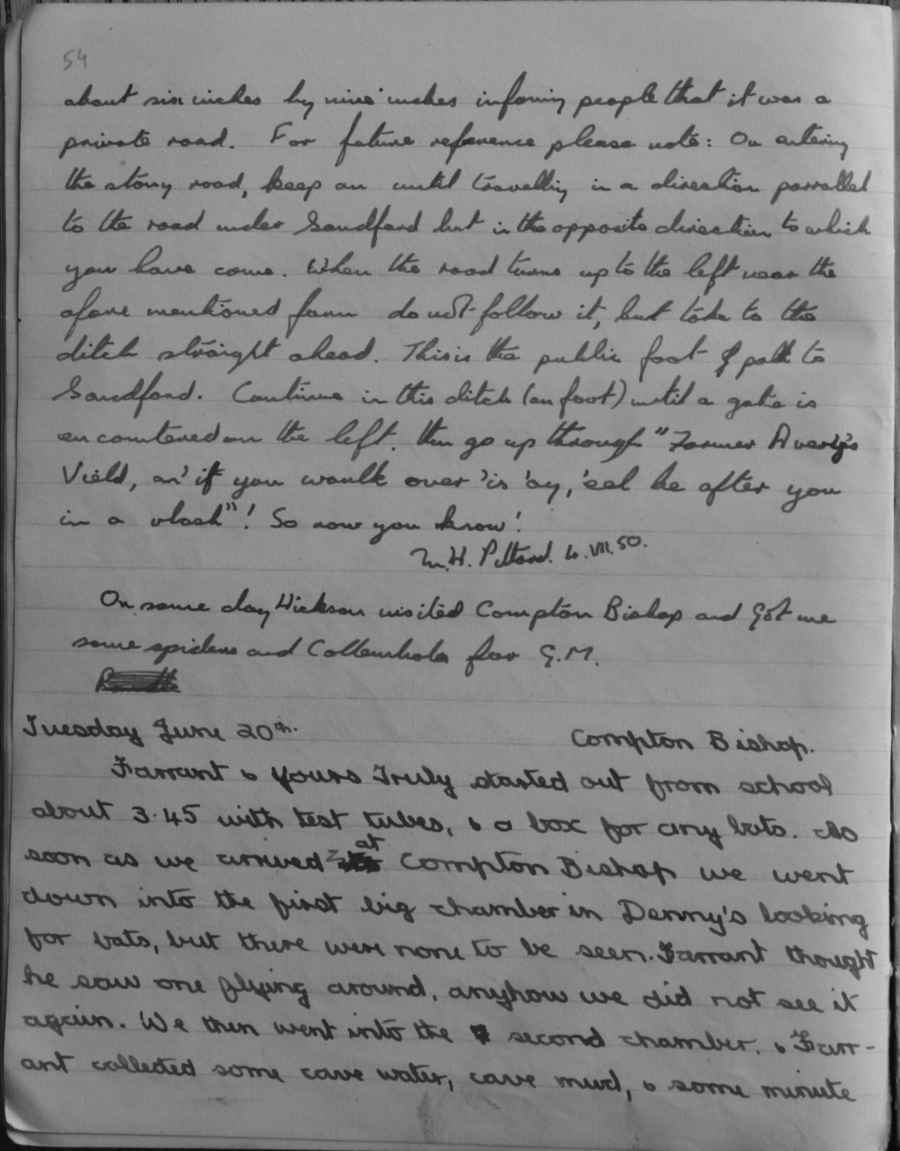 54
about six inches by nine inches informing people that it was a
private road. For future reference please note: On entering
the stony road, keep on until travelling in a direction parrallel
to the road under Sandford but in the opposite direction to which
you have come. When the road turns up to the left near the
afore mentioned farm do not follow it, but take to the
ditch straight ahead. This is the public foot path to
Sandford. Continue in this ditch (on foot) until a gate is
encountered on the left. then go up through "Farmer Avery's
Vield, an' if you waulk over 'is 'ay, 'eel be after you
in a vlash"! So now you know!
M.H. Pittard. VII.50.
On same day Hickson visited Compton Bishop and got me
some spiders and Collembola for G.M.
Tuesday June 20th. Compton Bishop.
Farrant & Yours Truly started out from school
about 3.45 with test tubes, & a box for any bats. As
soon as we arrived at Compton Bishop we went
down into the first big chamber in Denny's looking
for bats, but there were none to be seen. Farrant thought
he saw one flying around, anyhow we did not see it
again. We then went into the second chamber. & Farr-
ant collected some cave water, cave mud, & some minute